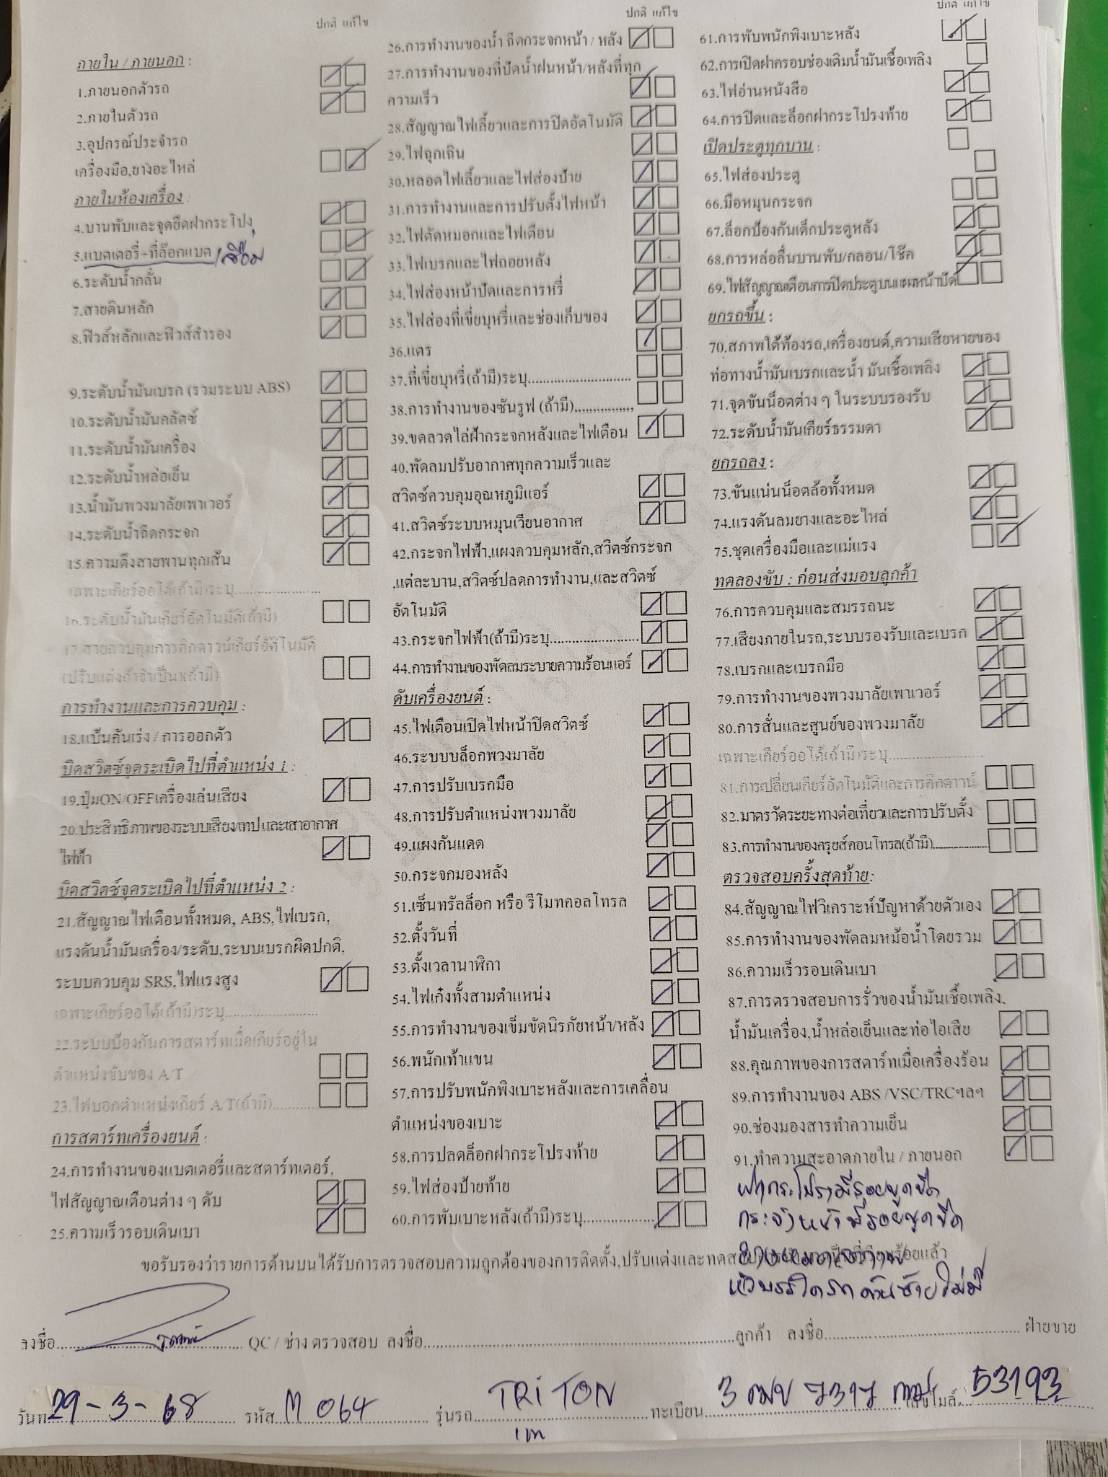 ปกติ แก้ไข
ภายใน / ภายนอก :
1.ภายนอกตัวรถ
2.ภายในตัวรถ
3.อุปกรณ์ประจำรถ
เครื่องมือ,ยางอะไหล่
ภายในห้องเครื่อง
4.บานพับและจุดยึดฝากระโปง
5.แบตเตอรี่+ที่ล๊อกแบต /เสื่อม
6.ระดับน้ำกลั่น
7.สายดินหลัก
8.ฟิวส์หลักและฟิวส์สำรอง
9.ระดับน้ำมันเบรก (รวมระบบ ABS)
10.ระดับน้ำมันคลัตช์
11.ระดับน้ำมันเครื่อง
12.ระดับน้ำหล่อเย็น
13.น้ำมันพวงมาลัยเพาเวอร์
14.ระดับน้ำฉีดกระจก
15.ความตึงสายพานทุกเส้น
เฉพาะเกียร์ออโต้(ถ้ามี)ระบุ....................
16.ระดับน้ำมันเกียร์อัตโนมัติ(ถ้ามี)
17.สายควบคุมการคิกดาวน์เกียร์อัติโนมัติ
(ปรับแต่งถ้าจำเป็น)(ถ้ามี)
การทำงานและการควบคุม :
18.แป้นคันเร่ง / การออกตัว
บิดสวิตซ์จุดระเบิดไปที่ตำแหน่ง 1 :
19.ปุ่มON/OFFเครื่องเล่นเสียง
20.ประสิทธิภาพของระบบเสียงเทปและเสาอากาศ
ไฟฟ้า
บิดสวิตซ์จุดระเบิดไปที่ตำแหน่ง 2 :
21.สัญญาณไฟเตือนทั้งหมด, ABS,ไฟเบรก,
แรงดันน้ำมันเครื่อง/ระดับ,ระบบเบรกผิดปกติ,
ระบบควบคุม SRS,ไฟแรงสูง
เฉพาะเกียร์ออโต้(ถ้ามี)ระบุ....................
22.ระบบป้องกันการสตาร์ทเมื่อเกียร์อยู่ใน
ตำแหน่งขับของ A/T
23.ไฟบอกตำแหน่งเกียร์ A/T(ถ้ามี)..........
การสตาร์ทเครื่องยนต์ :
24.การทำงานของแบตเตอรี่และสตาร์ทเตอร์,
ไฟสัญญาณเตือนต่าง ๆ ดับ
25.ความเร็วรอบเดินเบา
ปกติ แก้ไข
26.การทำงานของน้ำ ฉีดกระจกหน้า / หลัง
27.การทำงานของที่ปัดน้ำฝนหน้า/หลังที่ทุก
ความเร็ว
28.สัญญาณไฟเลี้ยวและการปิดอัตโนมัติ
29.ไฟฉุกเฉิน
30.หลอดไฟเลี้ยวและไฟส่องป้าย
31.การทำงานและการปรับตั้งไฟหน้า
32.ไฟตัดหมอกและไฟเตือน
33.ไฟเบรกและไฟถอยหลัง
34.ไฟส่องหน้าปัดและการหรี่
35.ไฟส่องที่เขี่ยบุหรี่และช่องเก็บของ
36.แตร
37.ที่เขี่ยบุหรี่(ถ้ามี)ระบุ......................
38.การทำงานของซันรูฟ (ถ้ามี)..............
39.ขดลวดไล่ฝ้ากระจกหลังและไฟเตือน
40.พัดลมปรับอากาศทุกความเร็วและ
สวิตซ์ควบคุมอุณหภูมิแอร์
41.สวิตซ์ระบบหมุนเวียนอากาศ
42.กระจกไฟฟ้า,แผงควบคุมหลัก,สวิตซ์กระจก
,แต่ละบาน,สวิตซ์ปลดการทำงาน,และสวิตซ์
อัตโนมัติ
43.กระจกไฟฟ้า(ถ้ามี)ระบุ....................
44.การทำงานของพัดลมระบายความร้อนแอร์
ดับเครื่องยนต์ :
45.ไฟเตือนเปิดไฟหน้าปิดสวิตซ์
46.ระบบบล็อกพวงมาลัย
47.การปรับเบรกมือ
48.การปรับตำแหน่งพวงมาลัย
49.แผงกันแดด
50.กระจกมองหลัง
51.เซ็นทรัลล็อก หรือ รีโมทคอลโทรล
52.ตั้งวันที่
53.ตั้งเวลานาฬิกา
54.ไฟเก๋งทั้งสามตำแหน่ง
55.การทำงานของเข็มขัดนิรภัยหน้า/หลัง
56.พนักเท้าแขน
57.การปรับพนักพิงเบาะหลังและการเคลื่อน
ตำแหน่งของเบาะ
58.การปลดล็อกฝากระโปรงท้าย
59.ไฟส่องป้ายท้าย
60.การพับเบาะหลัง(ถ้ามี)ระบุ................
ปกติ แก้ไข
61.การพับพนักพิงเบาะหลัง
62.การเปิดฝาครอบช่องเติมน้ำมันเชื้อเพลิง
63.ไฟอ่านหนังสือ
64.การปิดและล็อกฝากระโปรงท้าย
เปิดประตูทุกบาน :
65.ไฟส่องประตู
66.มือหมุนกระจก
67.ล็อกป้องกันเด็กประตูหลัง
68.การหล่อลื่นบานพับ/กลอน/โช๊ค
69.ไฟสัญญาณเตือนการปิดประตูบนแผงหน้าปัด
ยกรถขึ้น :
70.สภาพใต้ท้องรถ,เครื่องยนต์,ความเสียหายของ
ท่อทางน้ำมันเบรกและน้ำ มันเชื้อเพลิง
71.จุดขันน็อตต่าง ๆ ในระบบรองรับ
72.ระดับน้ำมันเกียร์ธรรมดา
ยกรถลง :
73.ขันแน่นน็อตล้อทั้งหมด
74.แรงดันลมยางและอะไหล่
75.ชุดเครื่องมือและแม่แรง
ทดลองขับ : ก่อนส่งมอบลูกค้า
76.การควบคุมและสมรรถนะ
77.เสียงภายในรถ,ระบบรองรับและเบรก
78.เบรกและเบรกมือ
79.การทำงานของพวงมาลัยเพาเวอร์
80.การสั่นและศูนย์ของพวงมาลัย
เฉพาะเกียร์ออโต้(ถ้ามี)ระบุ....................
81.การเปลี่ยนเกียร์อัตโนมัติและการคิกดาวน์
82.มาตรวัดระยะทางต่อเที่ยวและการปรับตั้ง
83.การทำงานของครุยส์คอนโทรล(ถ้ามี)............
ตรวจสอบครั้งสุดท้าย:
84.สัญญาณไฟวิเคราะห์ปัญหาด้วยตัวเอง
85.การทำงานของพัดลมหม้อน้ำโดยรวม
86.ความเร็วรอบเดินเบา
87.การตรวจสอบการรั่วของน้ำมันเชื้อเพลิง,
น้ำมันเครื่อง,น้ำหล่อเย็นและท่อไอเสีย
88.คุณภาพของการสตาร์ทเมื่อเครื่องร้อน
89.การทำงานของ ABS /VSC/TRCฯลฯ
90.ช่องมองสารทำความเย็น
91.ทำความสะอาดภายใน / ภายนอก
ฝากระโปรงมีรอยขูดขีด
กระจังหน้ามีรอยขูดขีด
หัวบรรไดรถด้านซ้ายไม่มี
ขอรับรองว่ารายการด้านบนได้รับการตรวจสอบความถูกต้องของการติดตั้ง,ปรับแต่งและทดสอบ เรียบร้อยแล้ว
ลงชื่อ.................... QC / ช่างตรวจสอบ ลงชื่อ....................ลูกค้า ลงชื่อ....................ฝ่ายขาย
วันที่ 29-3-68 รหัส M 064 รุ่นรถ TRITON ทะเบียน เลขไมล์ 53193